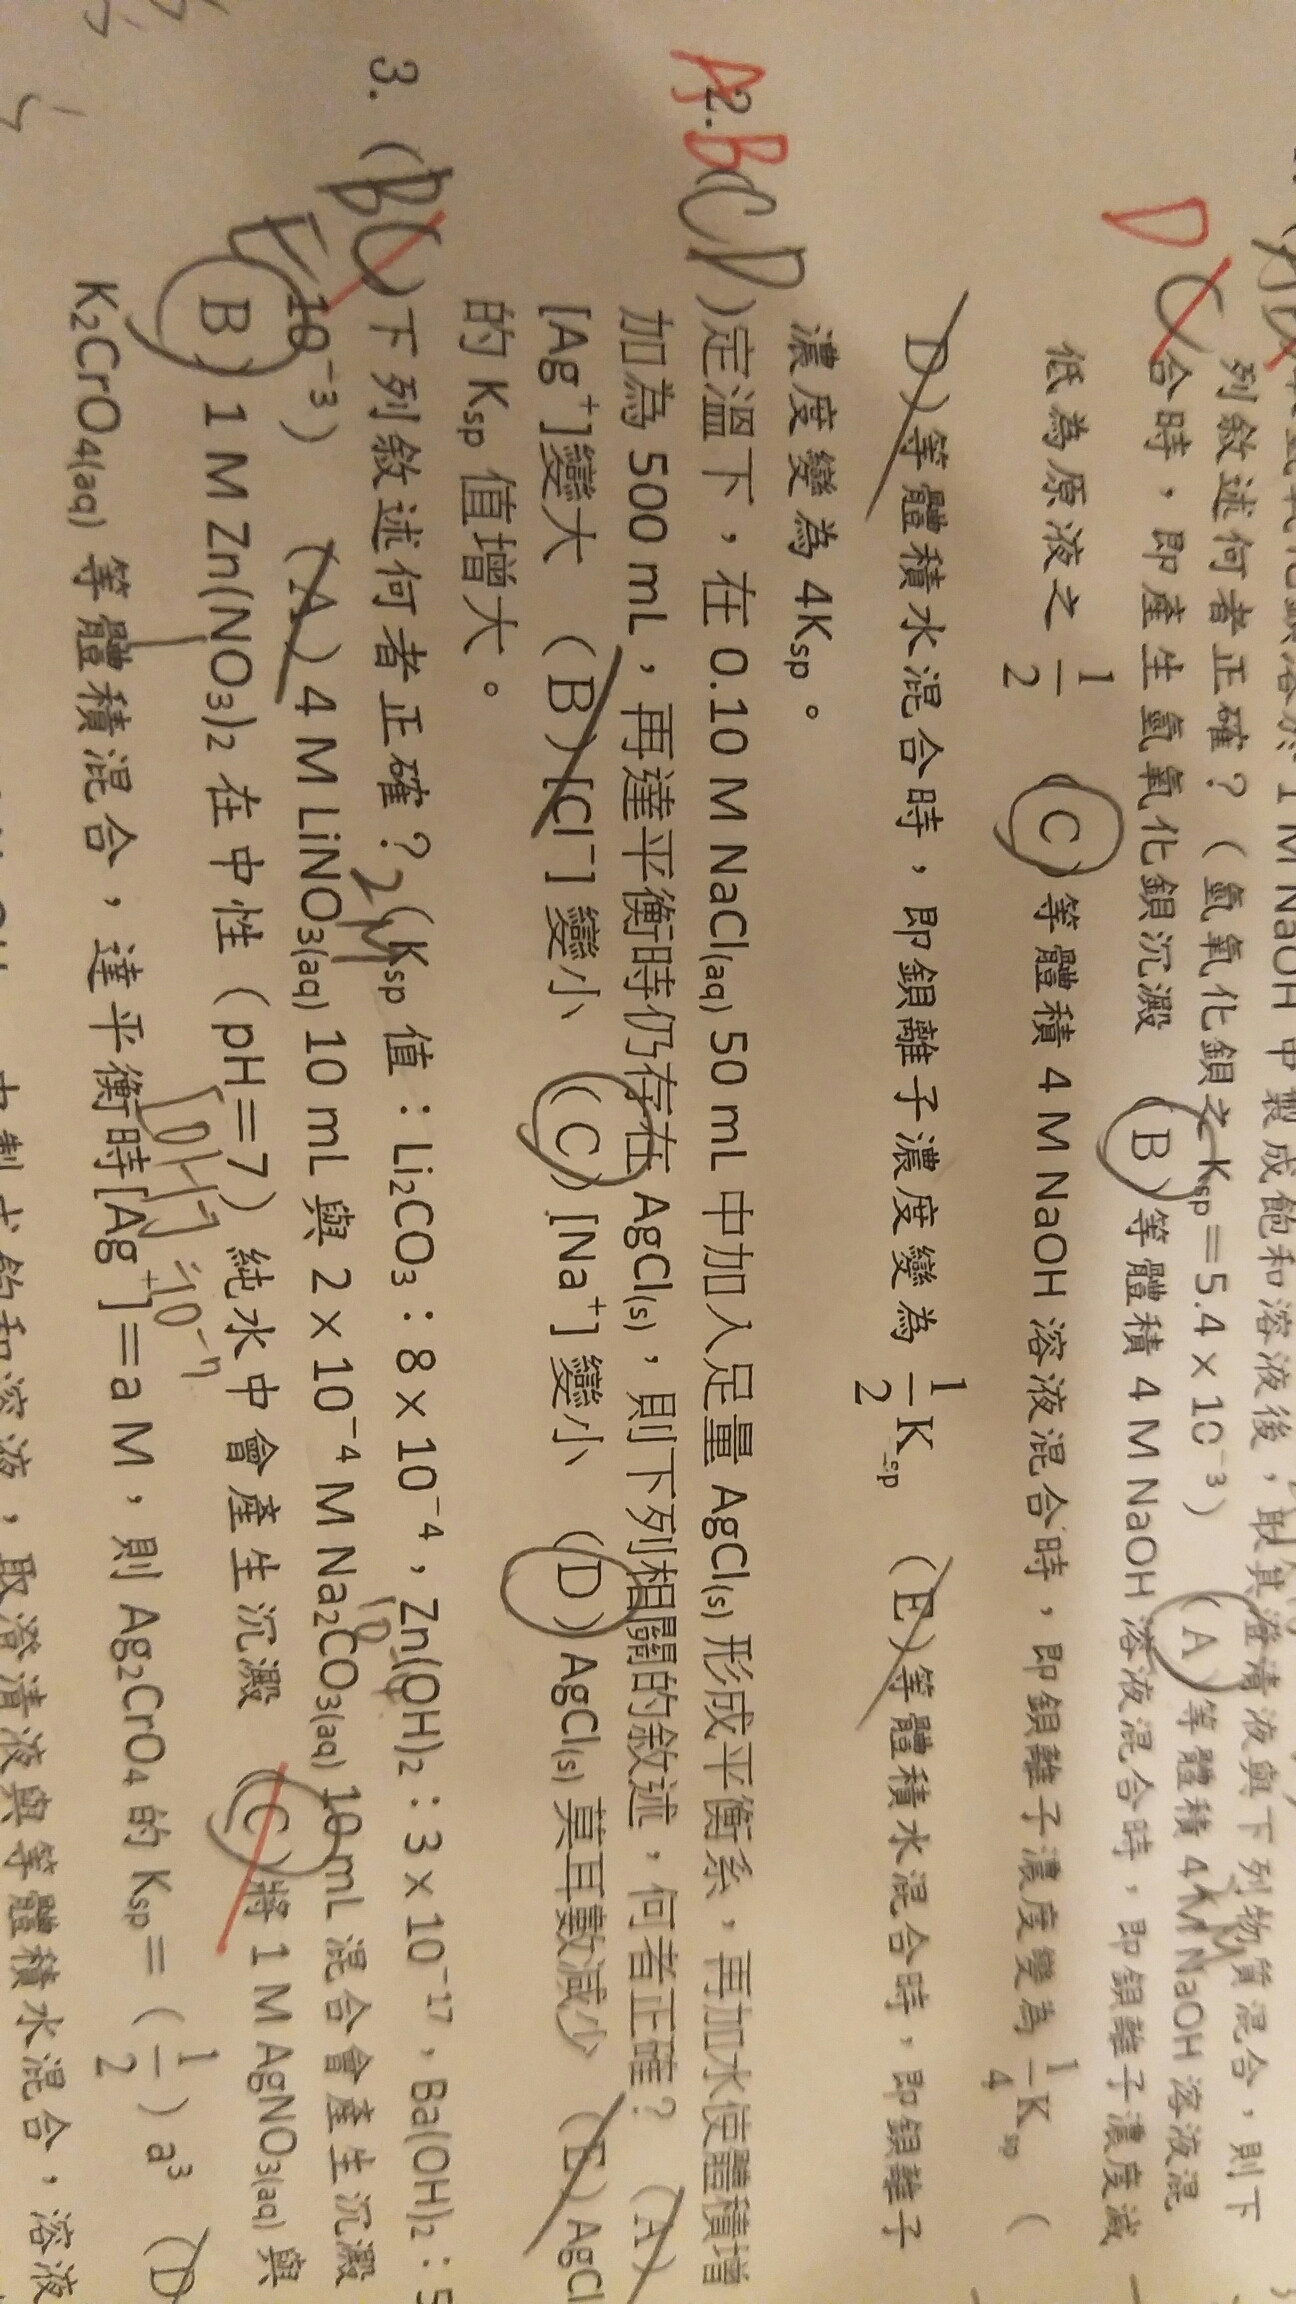 1M NaOH 中製成飽和溶液後，取其澄清液與下列物質混合，則下
列敘述何者正確？（氫氧化鋇之 Ksp＝5.4 × 10⁻³）　（A）等體積 4 M NaOH 溶液混
D C 合時，即產生氫氧化鋇沉澱　（B）等體積 4 M NaOH 溶液混合時，即鋇離子濃度減
低為原液之 1/2　（C）等體積 4 M NaOH 溶液混合時，即鋇離子濃度變為 1/4 Ksp　（
D）等體積水混合時，即鋇離子濃度變為 1/2 Ksp　（E）等體積水混合時，即鋇離子
濃度變為 4Ksp。
A 2. B CD ）定溫下，在 0.10 M NaCl(aq) 50 mL 中加入足量 AgCl(s) 形成平衡系，再加水使體積增
加為 500 mL，再達平衡時仍存在 AgCl(s)，則下列相關的敘述，何者正確？　（A）
[Ag⁺]變大　（B）[Cl⁻]變小　（C）[Na⁺]變小　（D）AgCl(s) 莫耳數減少　（E）AgCl
的 Ksp 值增大。
3.（BC）下列敘述何者正確？（Ksp 值：Li₂CO₃：8 × 10⁻⁴，Zn(OH)₂：3 × 10⁻¹⁷，Ba(OH)₂：5
E 2M 10
10⁻³）　（A）4 M LiNO₃(aq) 10 mL 與 2 × 10⁻⁴ M Na₂CO₃(aq) 10 mL 混合會產生沉澱
（B）1 M Zn(NO₃)₂ 在中性（pH＝7）純水中會產生沉澱　（C）將 1 M AgNO₃(aq) 與
10⁻⁷ 10⁻⁷
K₂CrO₄(aq) 等體積混合，達平衡時[Ag⁺]＝a M，則 Ag₂CrO₄ 的 Ksp＝（1/2）a³　（D
取澄清液與等體積水混合，溶液